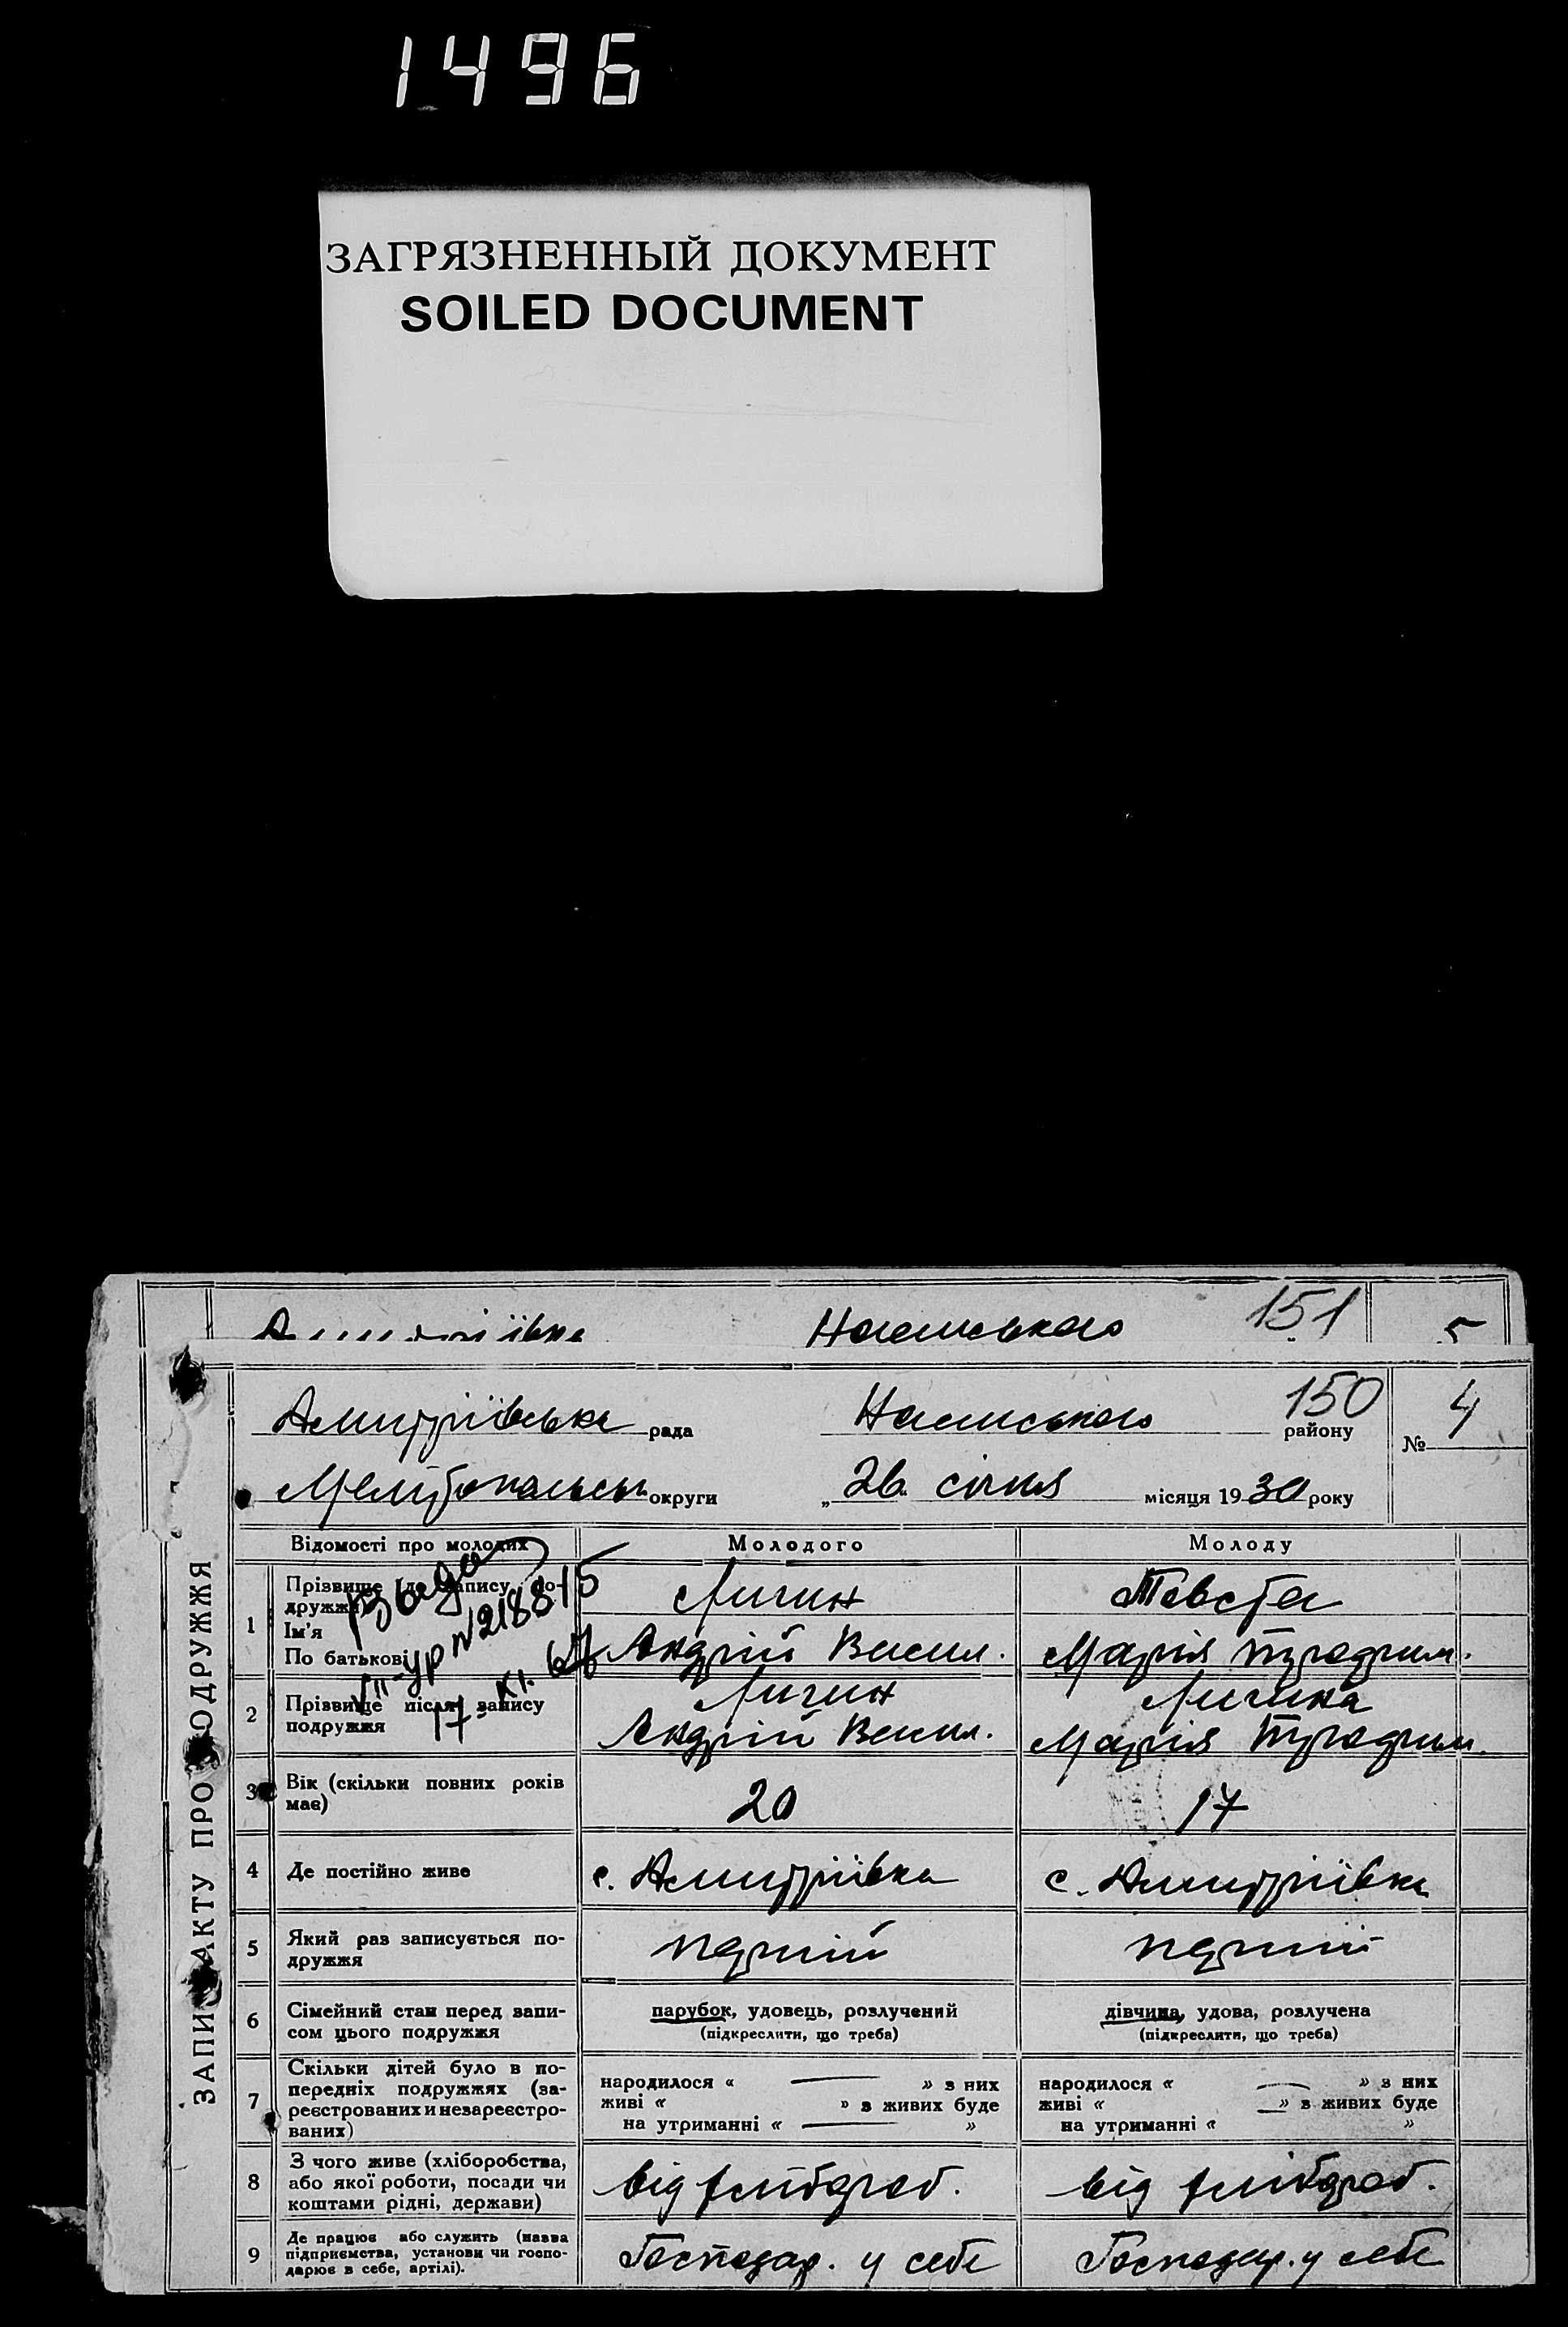 1496
ЗАГРЯЗНЕННЫЙ ДОКУМЕНТ
SOILED DOCUMENT
151
5
150
Дмитріївська рада района району
№ 4
Мелітопольськ округи
„26 січня місяця 1930 року
ЗАПИС АКТУ ПРО ОДРУЖЖЯ
Відомості про молодих Молодого Молоду
1 Прізвище до запису подружжя
Ім'я
По батькові
Личин
Андрій Васил.
Товста
Марія
VII-УР N218815
2 Прізвище після запису
подружжя
Личин
Андрій Васил.
Личина
Марія
3 Вік (скільки повних років
має)
20
17
4 Де постійно живе
с. Дмитріївка
с. Дмитріївка
5 Який раз записується по-
дружжя
перший
перший
6 Сімейний стан перед запи-
сом цього подружжя
парубок, удовець, розлучений
(підкреслити, що треба)
дівчина, удова, розлучена
(підкреслити, що треба)
7 Скільки дітей було в по-
передніх подружжях (за-
реєстрованих и незареєстро-
ваних)
народилося « — » з них
живі « » з живих буде
на утриманні « — »
народилося « — » з них
живі « — » з живих буде
на утриманні « »
8 З чого живе (хліборобства,
або якої роботи, посади чи
коштами рідні, держави)
від хлібороб.
від хлібороб.
9 Де працює або служить (назва
підприємства, установи чи госпо-
дарює в себе, артілі).
Господар. у себе
Господар. у себе